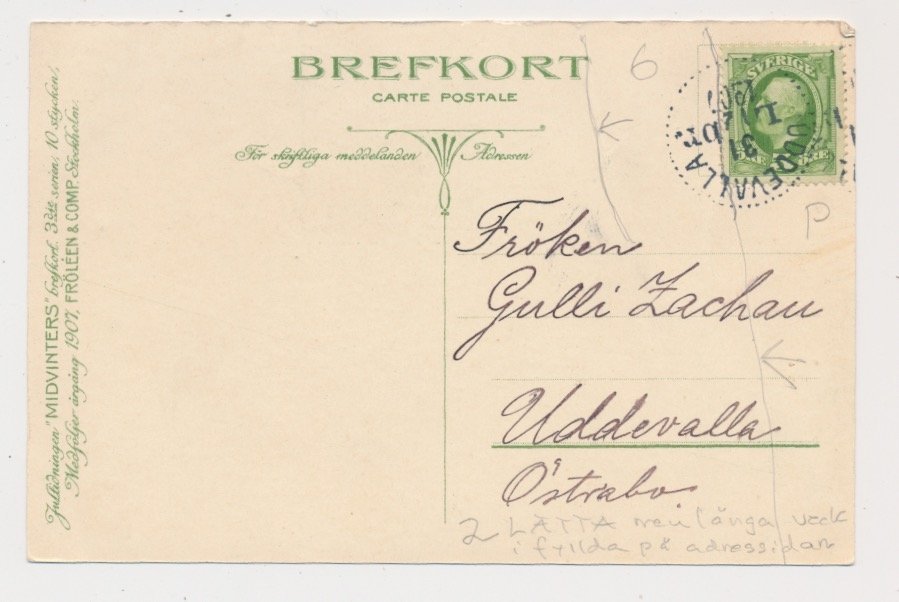 BREFKORT
CARTE POSTALE
För skriftliga meddelanden
Adressen
6
SVERIGE
UDDEVALLA
31
1907
P
Fröken
Gulli Zachau
Uddevalla
Östrabo
2 LÄTTA men långa veck
i fyllda på adressidan
Jultidningen "MIDVINTERS" brefkort. 3dje serien, 10 stycken,
Medföljer årgång 1907. FRÖLÉEN & COMP. Stockholm.